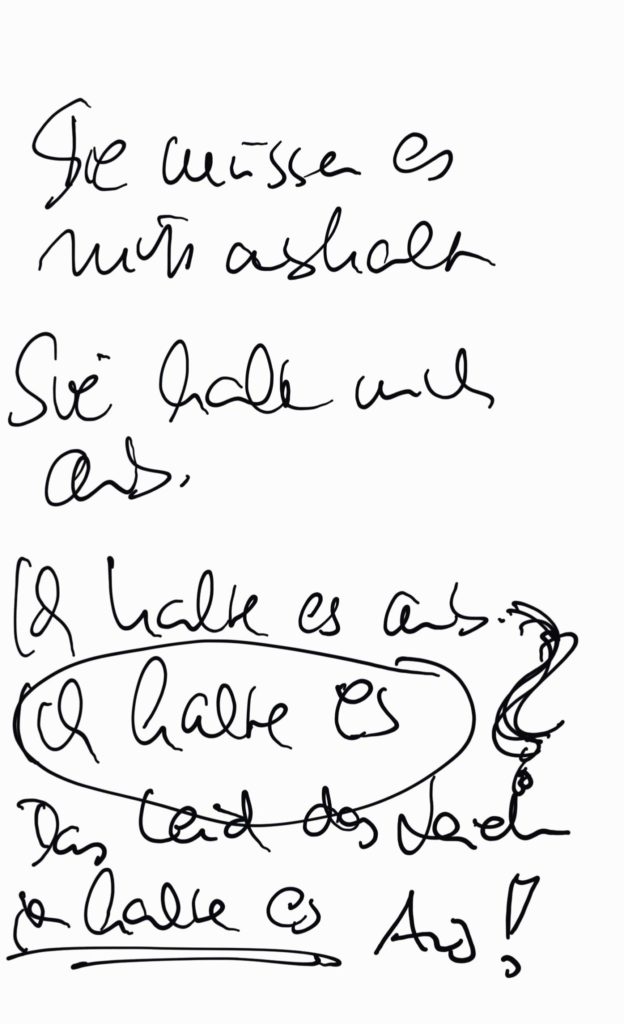 Sie müssen es
nicht aushalten
Sie halten mich
aus.
Ich halte es aus.
Ich halte es
Das Leid des
halte es Aus!